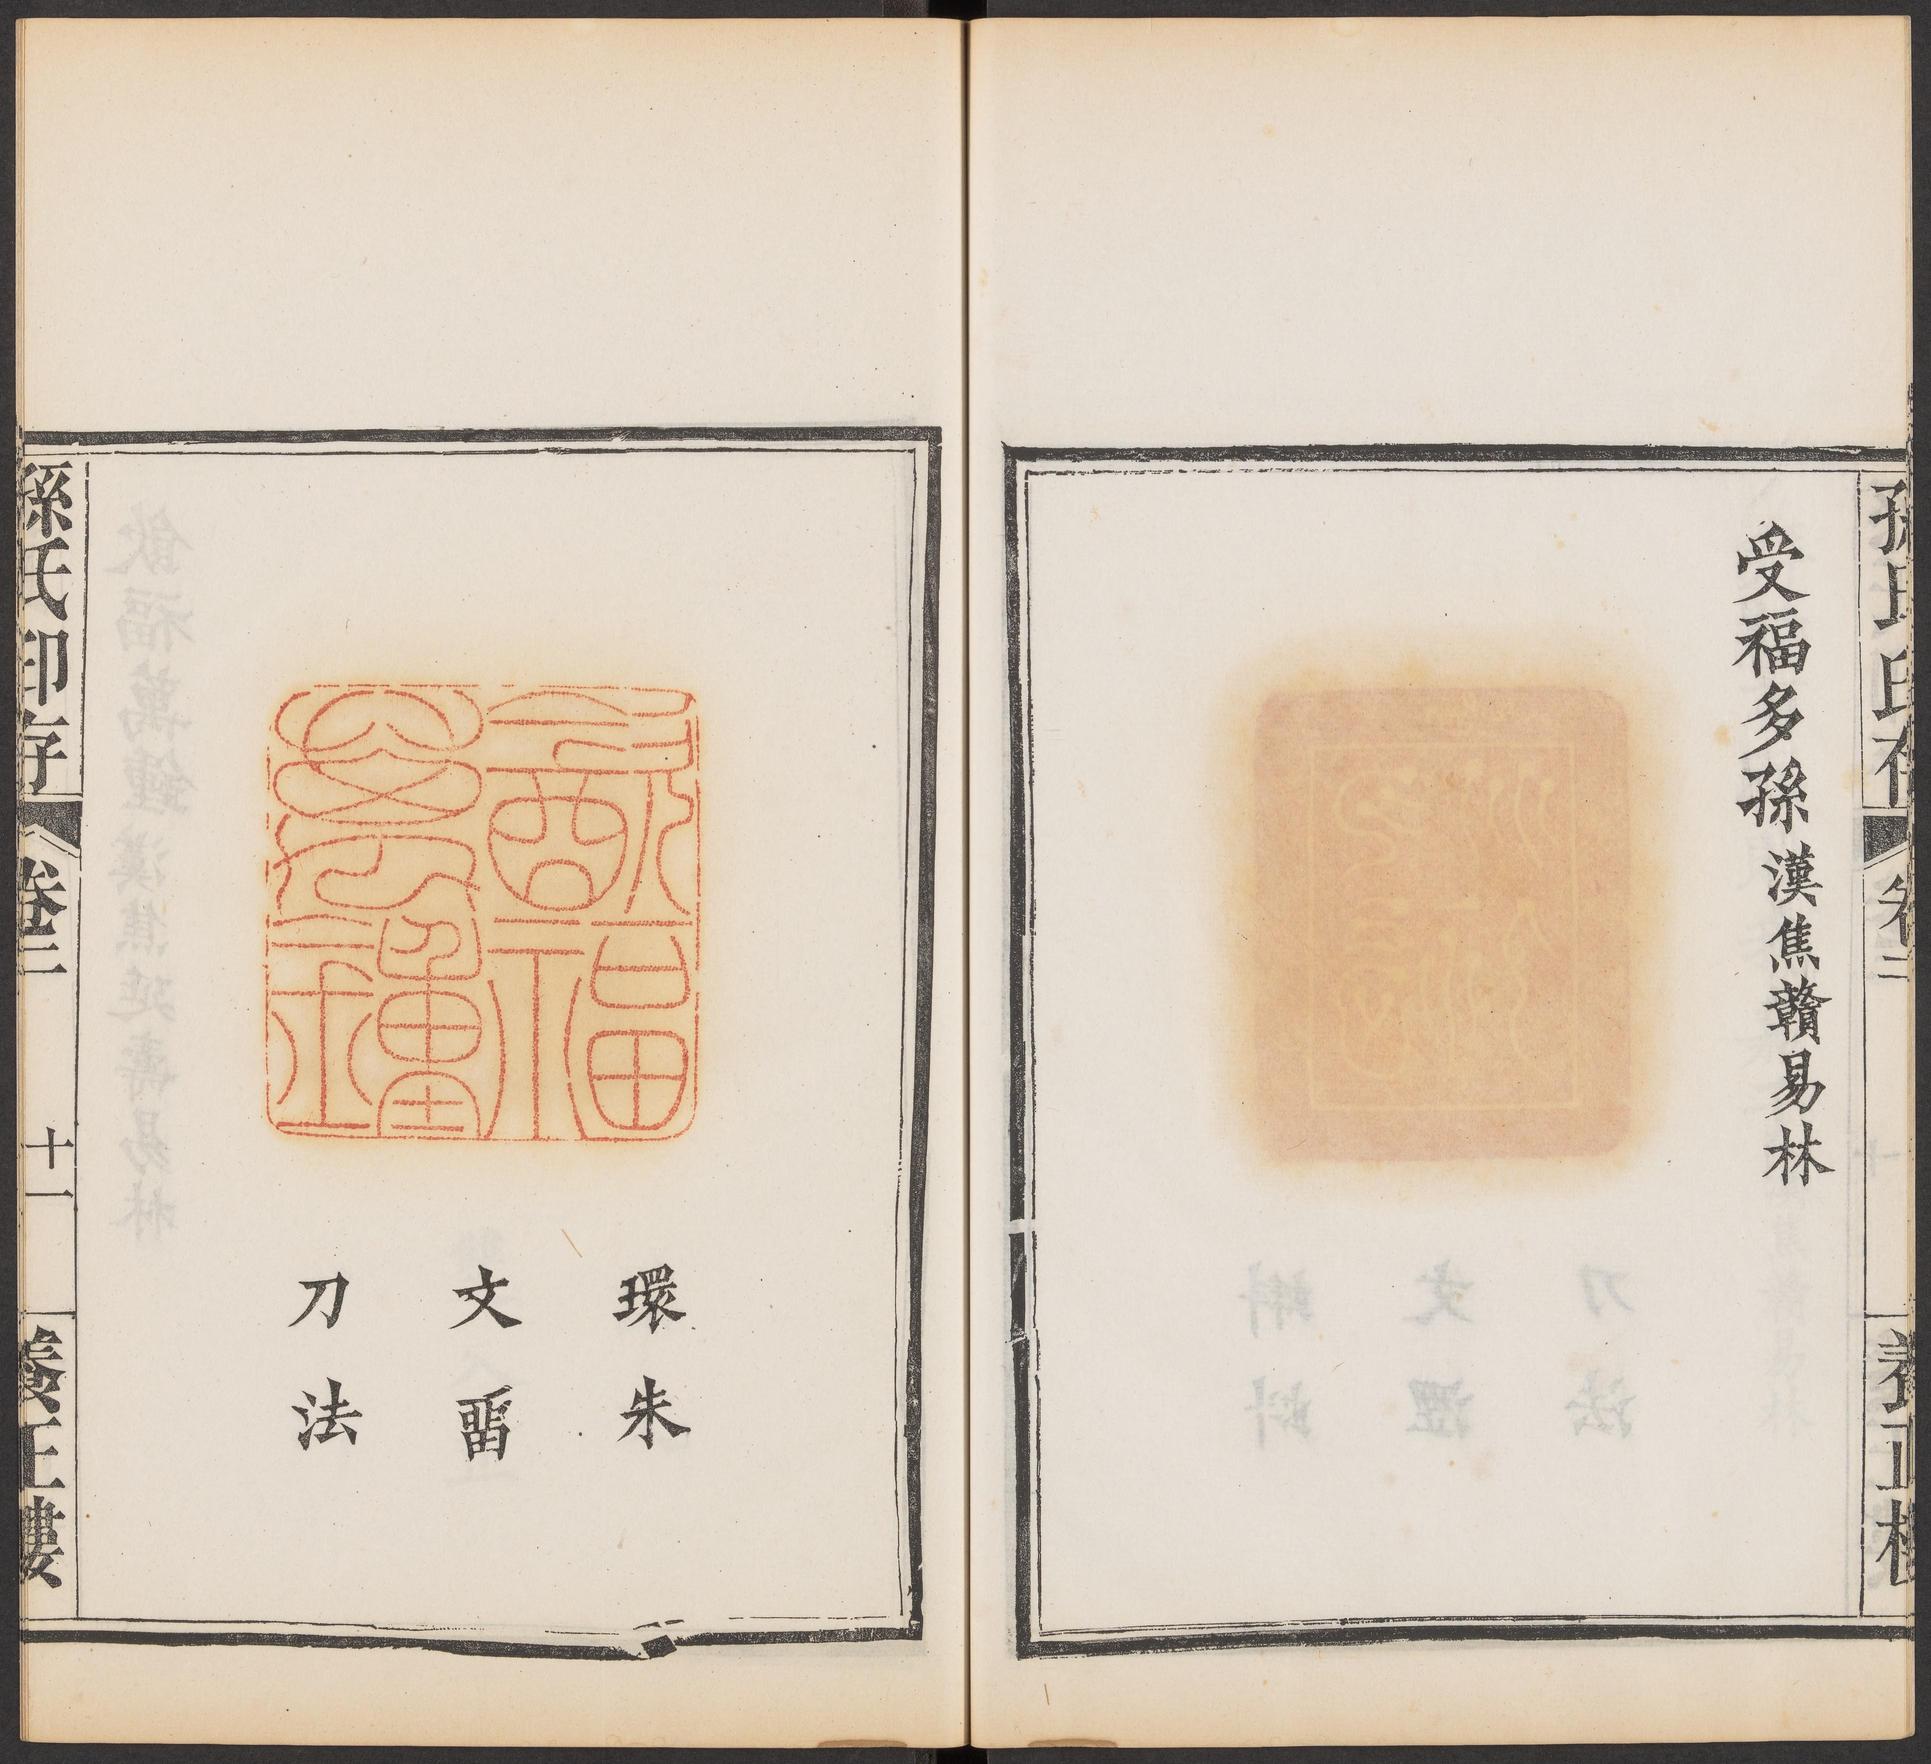 孫氏印存 卷二 養正樓
受福多孫 漢焦贛易林
飲福萬鍾
環朱
文畱
刀法
孫氏印存 卷二 十一 養正樓